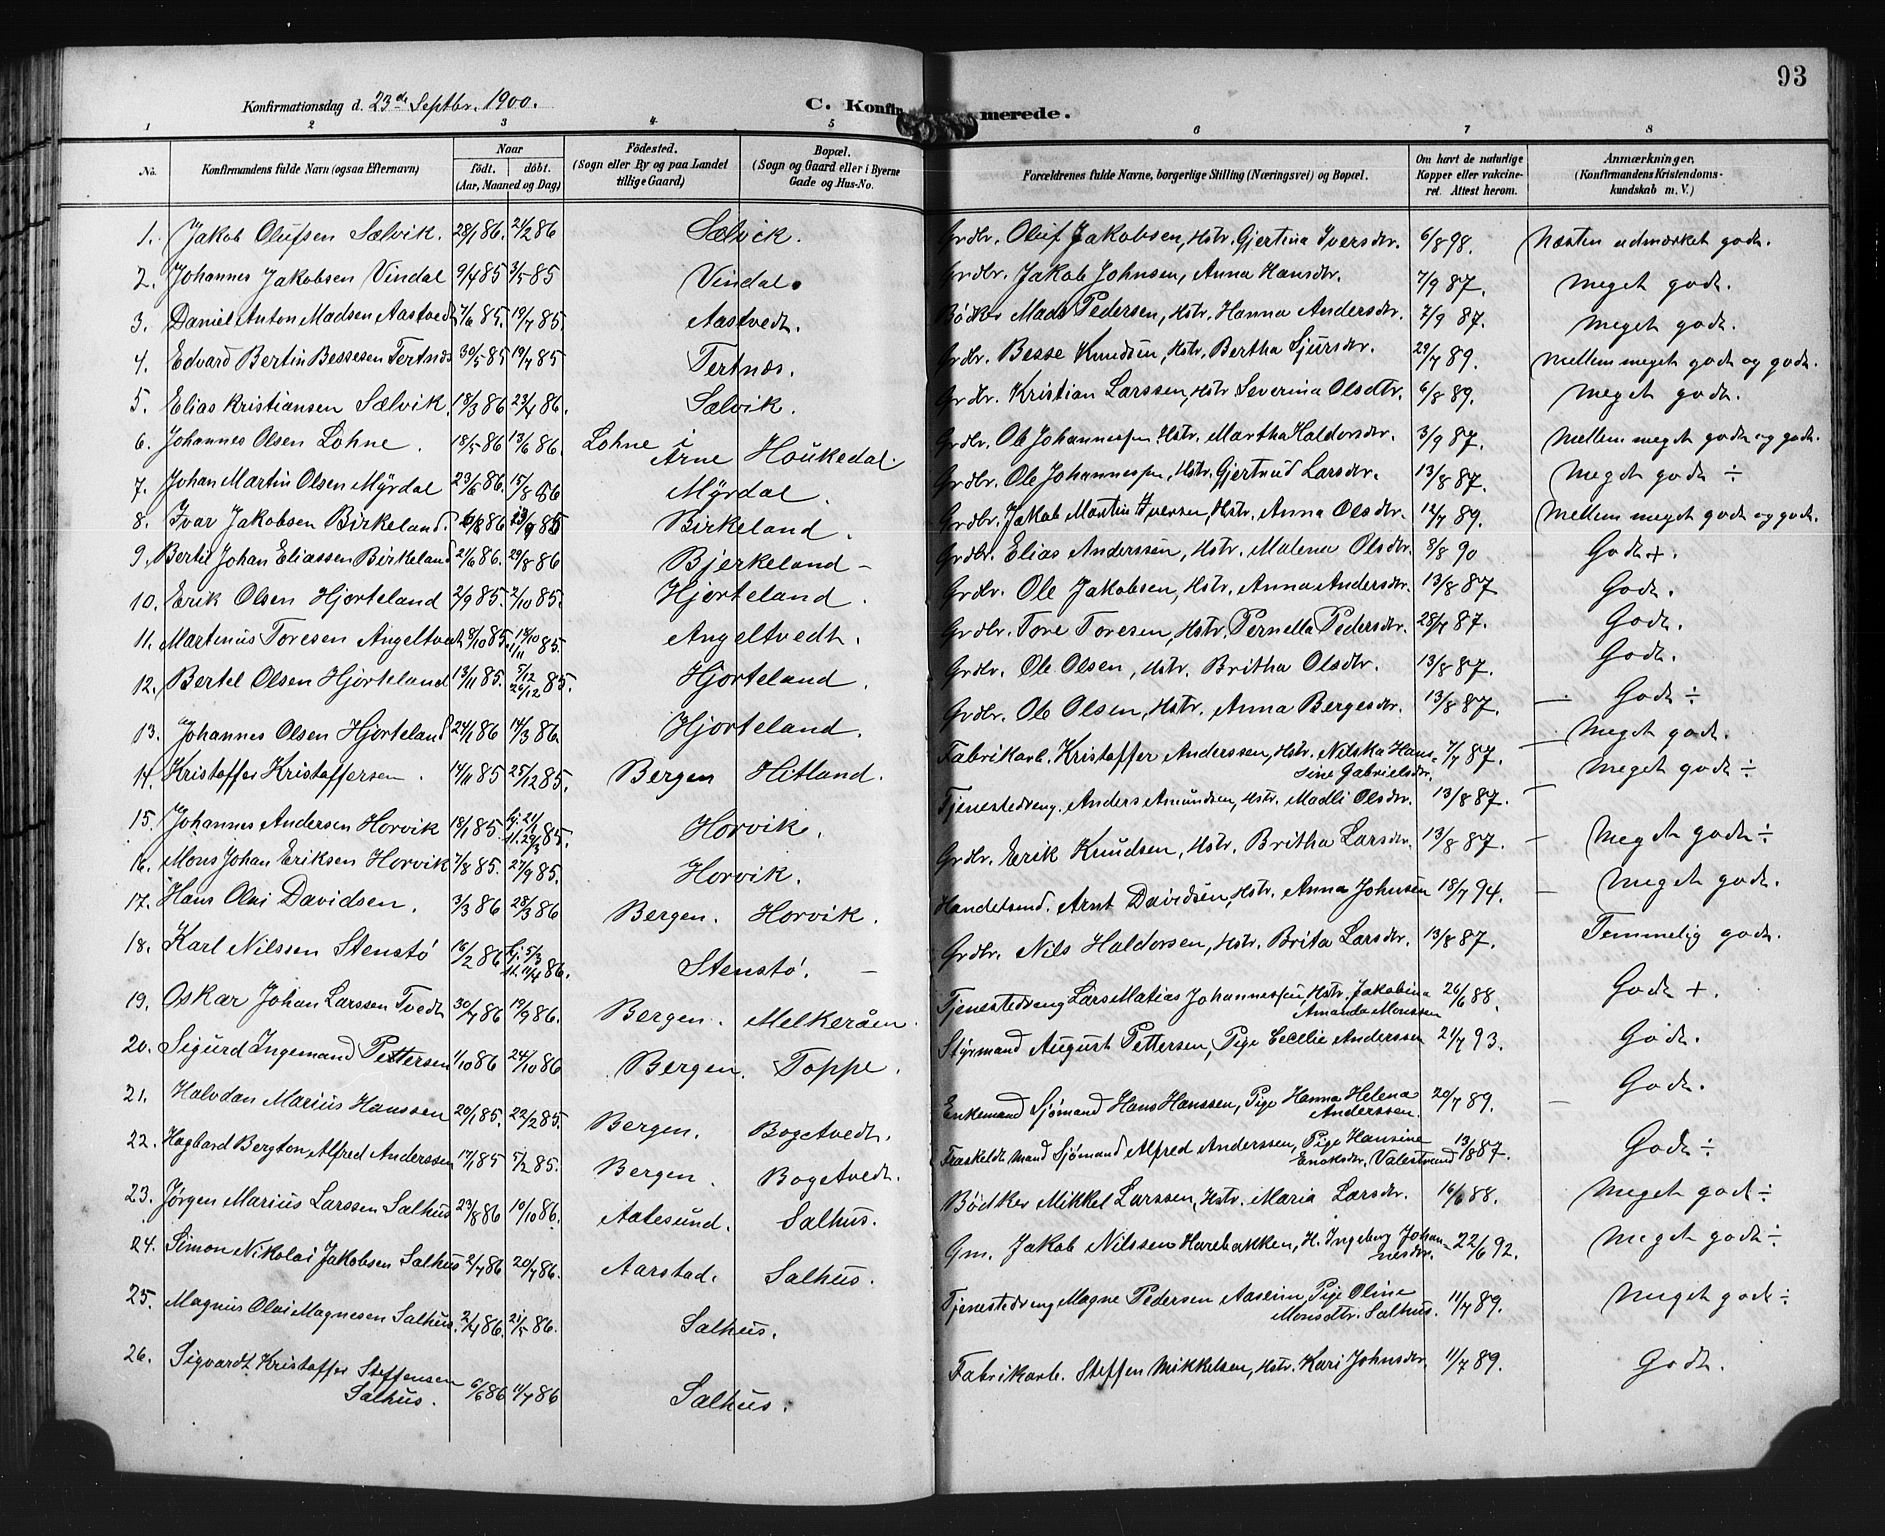 93
Konfirmationsdag d. 23de Septbr. 1900.
C. Konfirmerede.
1 2 3 4 5 6 7 8
No. Konfirmandens fulde Navn (ogsaa Efternavn) Naar født, døbt. (Aar, Maaned og Dag) Fødested. (Sogn eller By og paa Landet tillige Gaard) Bopæl. (Sogn og Gaard eller i Byerne Gade og Hus-No. Forældrenes fulde Navne, borgerlige Stilling (Næringsvei) og Bopæl. Om havt de naturlige Kopper eller vakcineret. Attest herom. Anmærkninger. (Konfirmandens Kristendomskundskab m. V.)
1. Jakob Olufsen Sælvik. 28/1 86. 21/2 86 Sælvik. Grdbr. Oluf Jakobsen, Hstr. Gjertina Iversdtr. 6/8 98. Næsten udmærket godt.
2. Johannes Jakobsen Vindal 9/4 85 3/5 85 Vindal. Grdbr. Jakob Johnsen, Anna Hansdtr. 7/9 87. Meget godt.
3. Daniel Anton Madsen Aastvedt 7/6 85. 19/7 85. Aastvedt. Bödker Mads Pedersen, Hstr. Hanna Andersdtr. 7/9 87. Meget godt.
4. Edvard Bertin Bessesen Tertnæs 30/5 85 19/7 85 Tertnæs. Grdbr. Besse Knudsen, Hstr. Bertha Sjursdtr. 29/7 89. Mellem meget godt og godt.
5. Elias Kristiansen Sælvik. 18/3 86 23/4 86. Sælvik. Grdbr. Kristian Larssen, Hstr. Severina Olsdtr. 6/8 89. Meget godt.
6. Johannes Olsen Lohne. 18/5 86 13/6 86. Lohne Arne Houkedal. Grdbr. Ole Johannessen Hstr. Martha Haldorsdtr. 3/9 87. Mellem meget godt og godt.
7. Johan Martin Olsen Myrdal 23/6 86. 15/8 86 Myrdal. Grdbr. Ole Johannessen, Hstr. Gjertrud Larsdtr. 13/8 87. Meget godt ÷
8. Ivar Jakobsen Birkeland. Birkeland. Grdbr. Jakob Martin Iversen, Hstr. Anna Olsdtr. 12/7 89. Mellem meget godt og godt.
9. Bertil Johan Eliassen Birkeland 21/6 86. 29/8 86 Bjerkeland – Grdbr. Elias Anderssen, Hstr. Malena Olsdtr. 8/8 90 Godt +.
10. Erik Olsen Hjorteland 2/9 85. 2/10 85. Hjorteland. Grdbr. Ole Jakobsen, Hstr. Anna Andersdtr. 13/8 87 Godt.
11. Martinus Toresen Angeltvedt 8/10 85. 1/11 85. Angeltvedt. Grdbr. Tore Toresen, Hstr. Pernella Pedersdtr. 28/7 87. Godt.
12. Bertel Olsen Hjorteland 13/11 85. 5/12 26/12 85. Hjorteland. Grdbr. Ole Olsen, Hstr. Britha Olsdtr. 13/8 87. Godt.
13. Johannes Olsen Hjorteland 24/1 86 14/3 86. Hjorteland. Grdbr. Ole Olsen, Hstr. Anna Bergesdtr. 13/8 87. — Godt ÷
14. Kristoffer Kristoffersen. 14/11 85 25/12 85. Bergen Hitland. Fabrikarb. Kristoffer Anderssen, Hstr. Nilska Hansine Gabrielsdtr. 7/7 87. — Meget godt.
15. Johannes Andersen Horvik 18/1 85 85. Horvik. Tjenestedreng. Anders Amundsen, Hstr. Madli Olsdtr. 13/8 87. — Meget godt ÷
16. Mons Johan Eriksen Horvik 7/8 85. 27/9 85. Horvik. Grdbr. Erik Knudsen, Hstr. Britha Larsdtr. 13/8 87. — Meget godt ÷
17. Hans Olai Davidsen. 3/3 86 28/3 86 Bergen. Horvik. Handelsmd. Arnt Davidsen, Hstr. Anna Johnsen 18/7 94. — Meget godt.
18. Karl Nilssen Stenstö 16/2 86 hj. 5/3 k. 11/4 86. Stenstö. — Grdbr. Nils Haldorsen, Hstr. Brita Larsdtr. 13/8 87. Temmelig godt.
19. Oskar Johan Larssen Tvedt 30/7 86 19/9 86. Bergen. Melkeråen. Tjenestedreng Lars Matias Johannessen, Hstr. Jakobina Amanda Monssen 26/6 88. Godt +.
20. Sigurd Ingemand Pettersen 1/10 86 24/10 86 Bergen. Toppe. Styrmand August Pettersen, Pige Cecelie Anderssen 21/7 93. Godt.
21. Halvdan Marius Hanssen 20/1 85. 22/2 85. Bergen. Bogetvedt. Enkemand Sjömand Hans Hanssen, Pige Hanna Helena Anderssen. 20/7 89. — Godt.
22. Hagbard Bergton Alfred Anderssen 17/1 85 5/2 85. Bergen. Bogetvedt. Fraskeldt Mand Sjömand Alfred Anderssen, Pige Hansine Enoksdtr. Valestrand 13/8 87. Godt ÷
23. Jørgen Marius Larssen Salhus 23/8 86 10/10 86. Aalesund. Salhus. Bödker Mikkel Larssen, Hstr. Maria Larsdtr. 16/6 88. Meget godt ÷
24. Simon Nikolai Jakobsen Salhus 2/7 86 20/7 86. Aarstad. Salhus. Gm. Jakob Nilssen Harebakken, H. Ingeborg Johannesdtr. 22/6 92. Meget godt ÷
25. Magnus Olai Magnesen Salhus. 2/4 86. 21/5 86. Salhus. Tjenestedreng Magne Pedersen Aasen, Pige Oline Monsdtr. Salhus. 11/7 89. Meget godt ÷
26. Sigvardt Kristoffer Steffensen Salhus. 6/6 86 11/7 86 Salhus. Fabrikarb. Steffen Mikkelsen, Hstr. Kari Johnsdtr. 11/7 89. Godt.